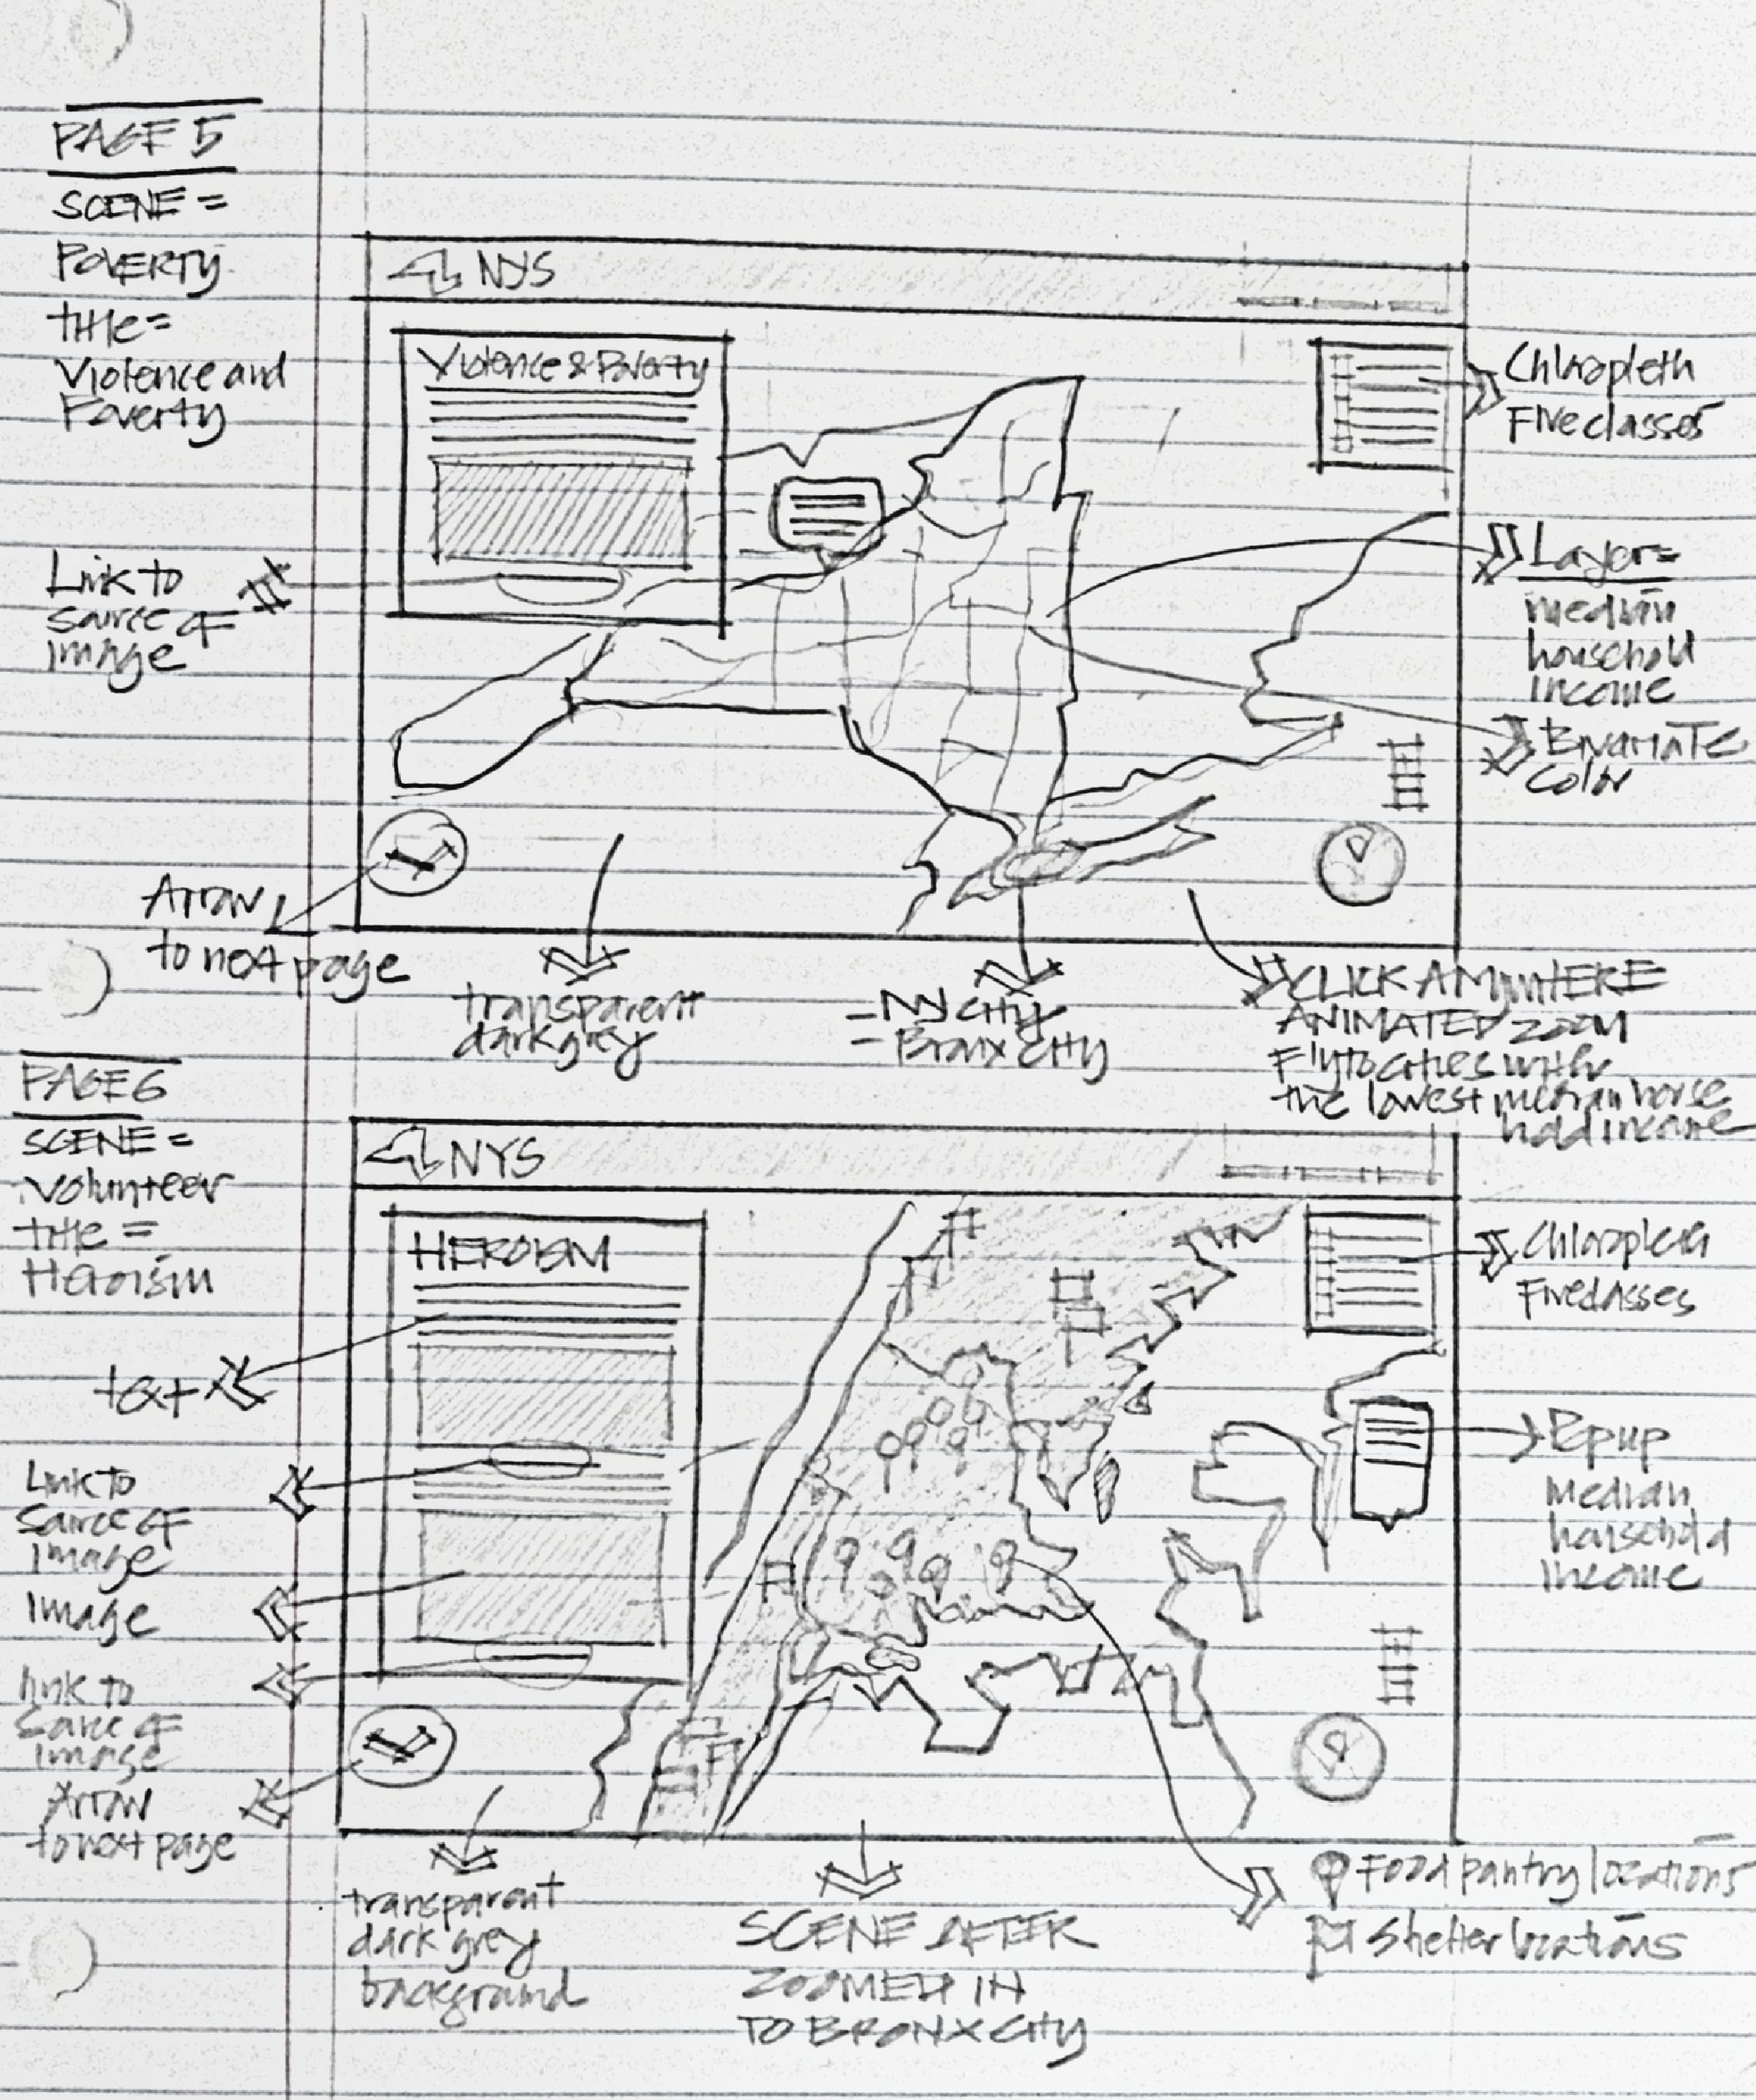 PAGE 5
SCENE =
POVERTY
title =
Violence and
Poverty
NYS
Violence & Poverty
Chloropleth
Five classes
Layer =
median
household
income
Bivariate
color
Link to
source of
image
Arrow
to next page
transparent
dark grey
- NY City
- Bronx City
CLICK ANYWHERE
ANIMATED ZOOM
Fly to cities with
the lowest median house
hold income
PAGE 6
SCENE =
Volunteer
title =
Heroism
NYS
HEROISM
Chloropleth
Five classes
text
Popup
Median
household
income
Link to
source of
image
image
link to
source of
image
Arrow
to next page
transparent
dark grey
background
SCENE AFTER
ZOOMED IN
TO BRONX City
Food pantry locations
Shelter locations